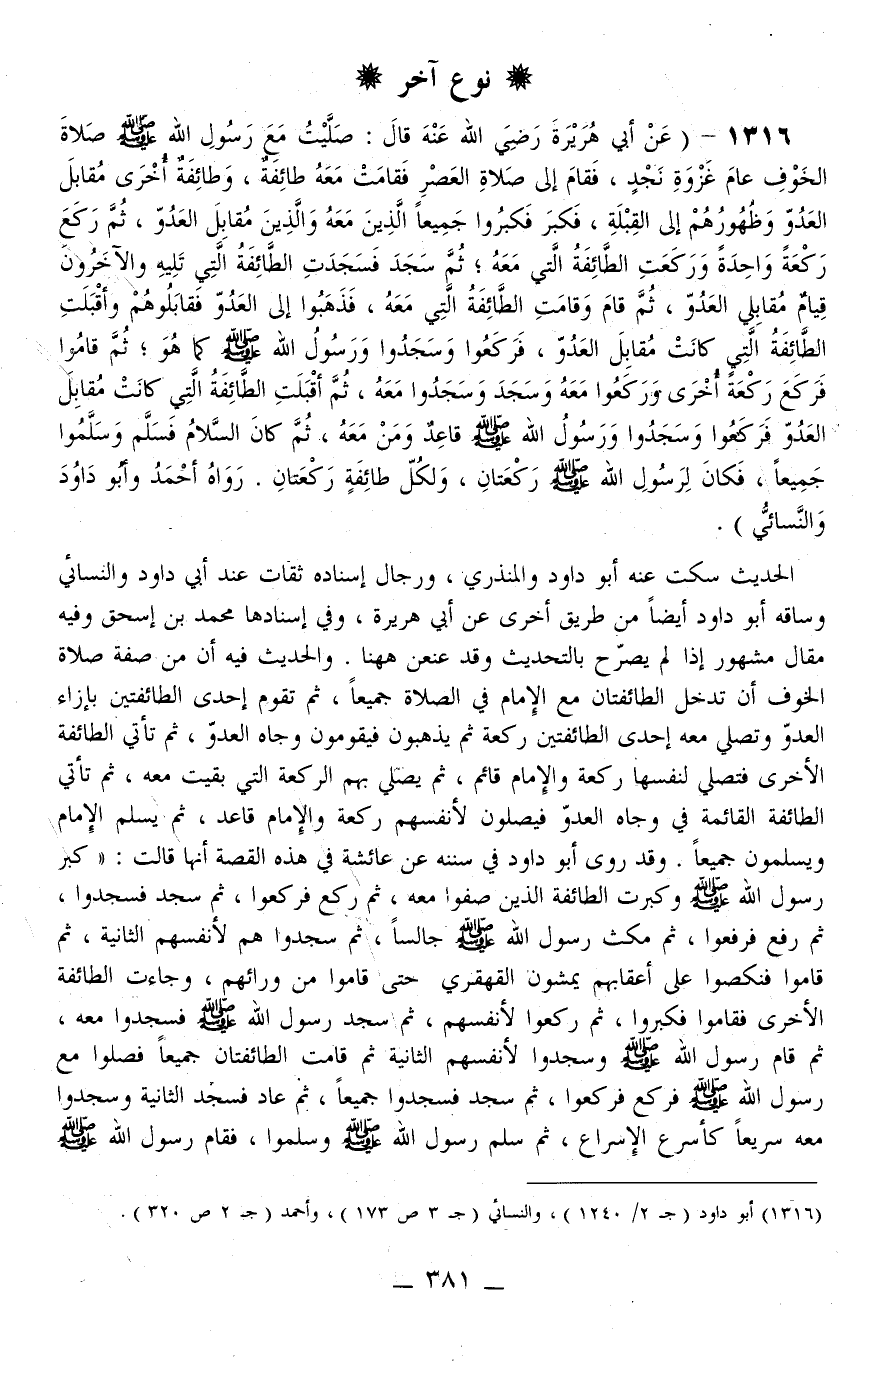 ❋ نوع آخر ❋
١٣١٦ - ( عَنْ أبي هُرَيْرَةَ رَضِيَ الله عَنْهُ قالَ : صَلَّيْتُ مَعَ رَسُولِ الله ﷺ صَلاةَ
الخَوْفِ عامَ غَزْوَةِ نَجْدٍ ، فَقامَ إلى صَلاةِ العَصْرِ فَقامَتْ مَعَهُ طائِفَةٌ ، وَطائِفَةٌ أُخْرَى مُقابِلَ
العَدُوّ وَظُهُورُهُمْ إلى القِبْلَةِ ، فَكَبرَ فَكبرُوا جَمِيعاً الَّذِينَ مَعَهُ وَالَّذِينَ مُقابِلَ العَدُوّ ، ثُمَّ رَكَعَ
رَكْعَةً وَاحِدَةً وَرَكَعَتِ الطَّائِفَةُ الَّتي مَعَهُ ؛ ثُمَّ سَجَدَ فَسَجَدَتِ الطَّائِفَةُ الَّتِي تَلِيهِ والآخَرُونَ
قِيامٌ مُقابِلِي العَدُوّ ، ثُمَّ قامَ وَقامَتِ الطَّائِفَةُ الَّتِي مَعَهُ ، فَذَهَبُوا إلى العَدُوّ فَقابَلُوهُمْ وأقْبَلَتِ
الطَّائِفَةُ الَّتِي كانَتْ مُقابِلَ العَدُوّ ، فَرَكَعُوا وَسَجَدُوا وَرَسُولُ الله ﷺ كما هُوَ ؛ ثُمَّ قامُوا
فَرَكَعَ رَكْعَةً أُخْرَى وَرَكَعُوا مَعَهُ وَسَجَدَ وَسَجَدُوا مَعَهُ ، ثُمَّ أقْبَلَتِ الطَّائِفَةُ الَّتِي كانَتْ مُقابِلَ
العَدُوّ فَرَكَعُوا وَسَجَدُوا وَرَسُولُ الله ﷺ قاعِدٌ وَمَنْ مَعَهُ ، ثُمَّ كانَ السَّلامُ فَسَلَّم وَسَلَّمُوا
جَمِيعاً ، فَكانَ لِرَسُولِ الله ﷺ رَكْعَتانِ ، وَلكُلّ طائِفَةٍ رَكْعَتانِ . رَوَاهُ أحْمَدُ وأبُو دَاوُدَ
وَالنَّسائيُّ ) .
الحديث سكت عنه أبو داود والمنذري ، ورجال إسناده ثقات عند أبي داود والنسائي
وساقه أبو داود أيضاً من طريق أخرى عن أبي هريرة ، وفي إسنادها محمد بن إسحق وفيه
مقال مشهور إذا لم يصرّح بالتحديث وقد عنعن ههنا . والحديث فيه أن من صفة صلاة
الخوف أن تدخل الطائفتان مع الإمام في الصلاة جميعاً ، ثم تقوم إحدى الطائفتين بإزاء
العدوّ وتصلي معه إحدى الطائفتين ركعة ثم يذهبون فيقومون وجاه العدوّ ، ثم تأتي الطائفة
الأخرى فتصلي لنفسها ركعة والإمام قائم ، ثم يصلي بهم الركعة التي بقيت معه ، ثم تأتي
الطائفة القائمة في وجاه العدوّ فيصلون لأنفسهم ركعة والإمام قاعد ، ثم يسلم الإمام
ويسلمون جميعاً . وقد روى أبو داود في سننه عن عائشة في هذه القصة أنها قالت : « كبر
رسول الله ﷺ وكبرت الطائفة الذين صفوا معه ، ثم ركع فركعوا ، ثم سجد فسجدوا ،
ثم رفع فرفعوا ، ثم مكث رسول الله ﷺ جالساً ، ثم سجدوا هم لأنفسهم الثانية ، ثم
قاموا فنكصوا على أعقابهم يمشون القهقري حتى قاموا من ورائهم ، وجاءت الطائفة
الأخرى فقاموا فكبروا ، ثم ركعوا لأنفسهم ، ثم سجد رسول الله ﷺ فسجدوا معه ،
ثم قام رسول الله ﷺ وسجدوا لأنفسهم الثانية ثم قامت الطائفتان جميعاً فصلوا مع
رسول الله ﷺ فركع فركعوا ، ثم سجد فسجدوا جميعاً ، ثم عاد فسجد الثانية وسجدوا
معه سريعاً كأسرع الإسراع ، ثم سلم رسول الله ﷺ وسلموا ، فقام رسول الله ﷺ
(١٣١٦) أبو داود ( جـ ٢/ ١٢٤٠ ) ، والنسائي ( جـ ٣ ص ١٧٣ ) ، وأحمد ( جـ ٢ ص ٣٢٠ ) .
ـ ٣٨١ ـ